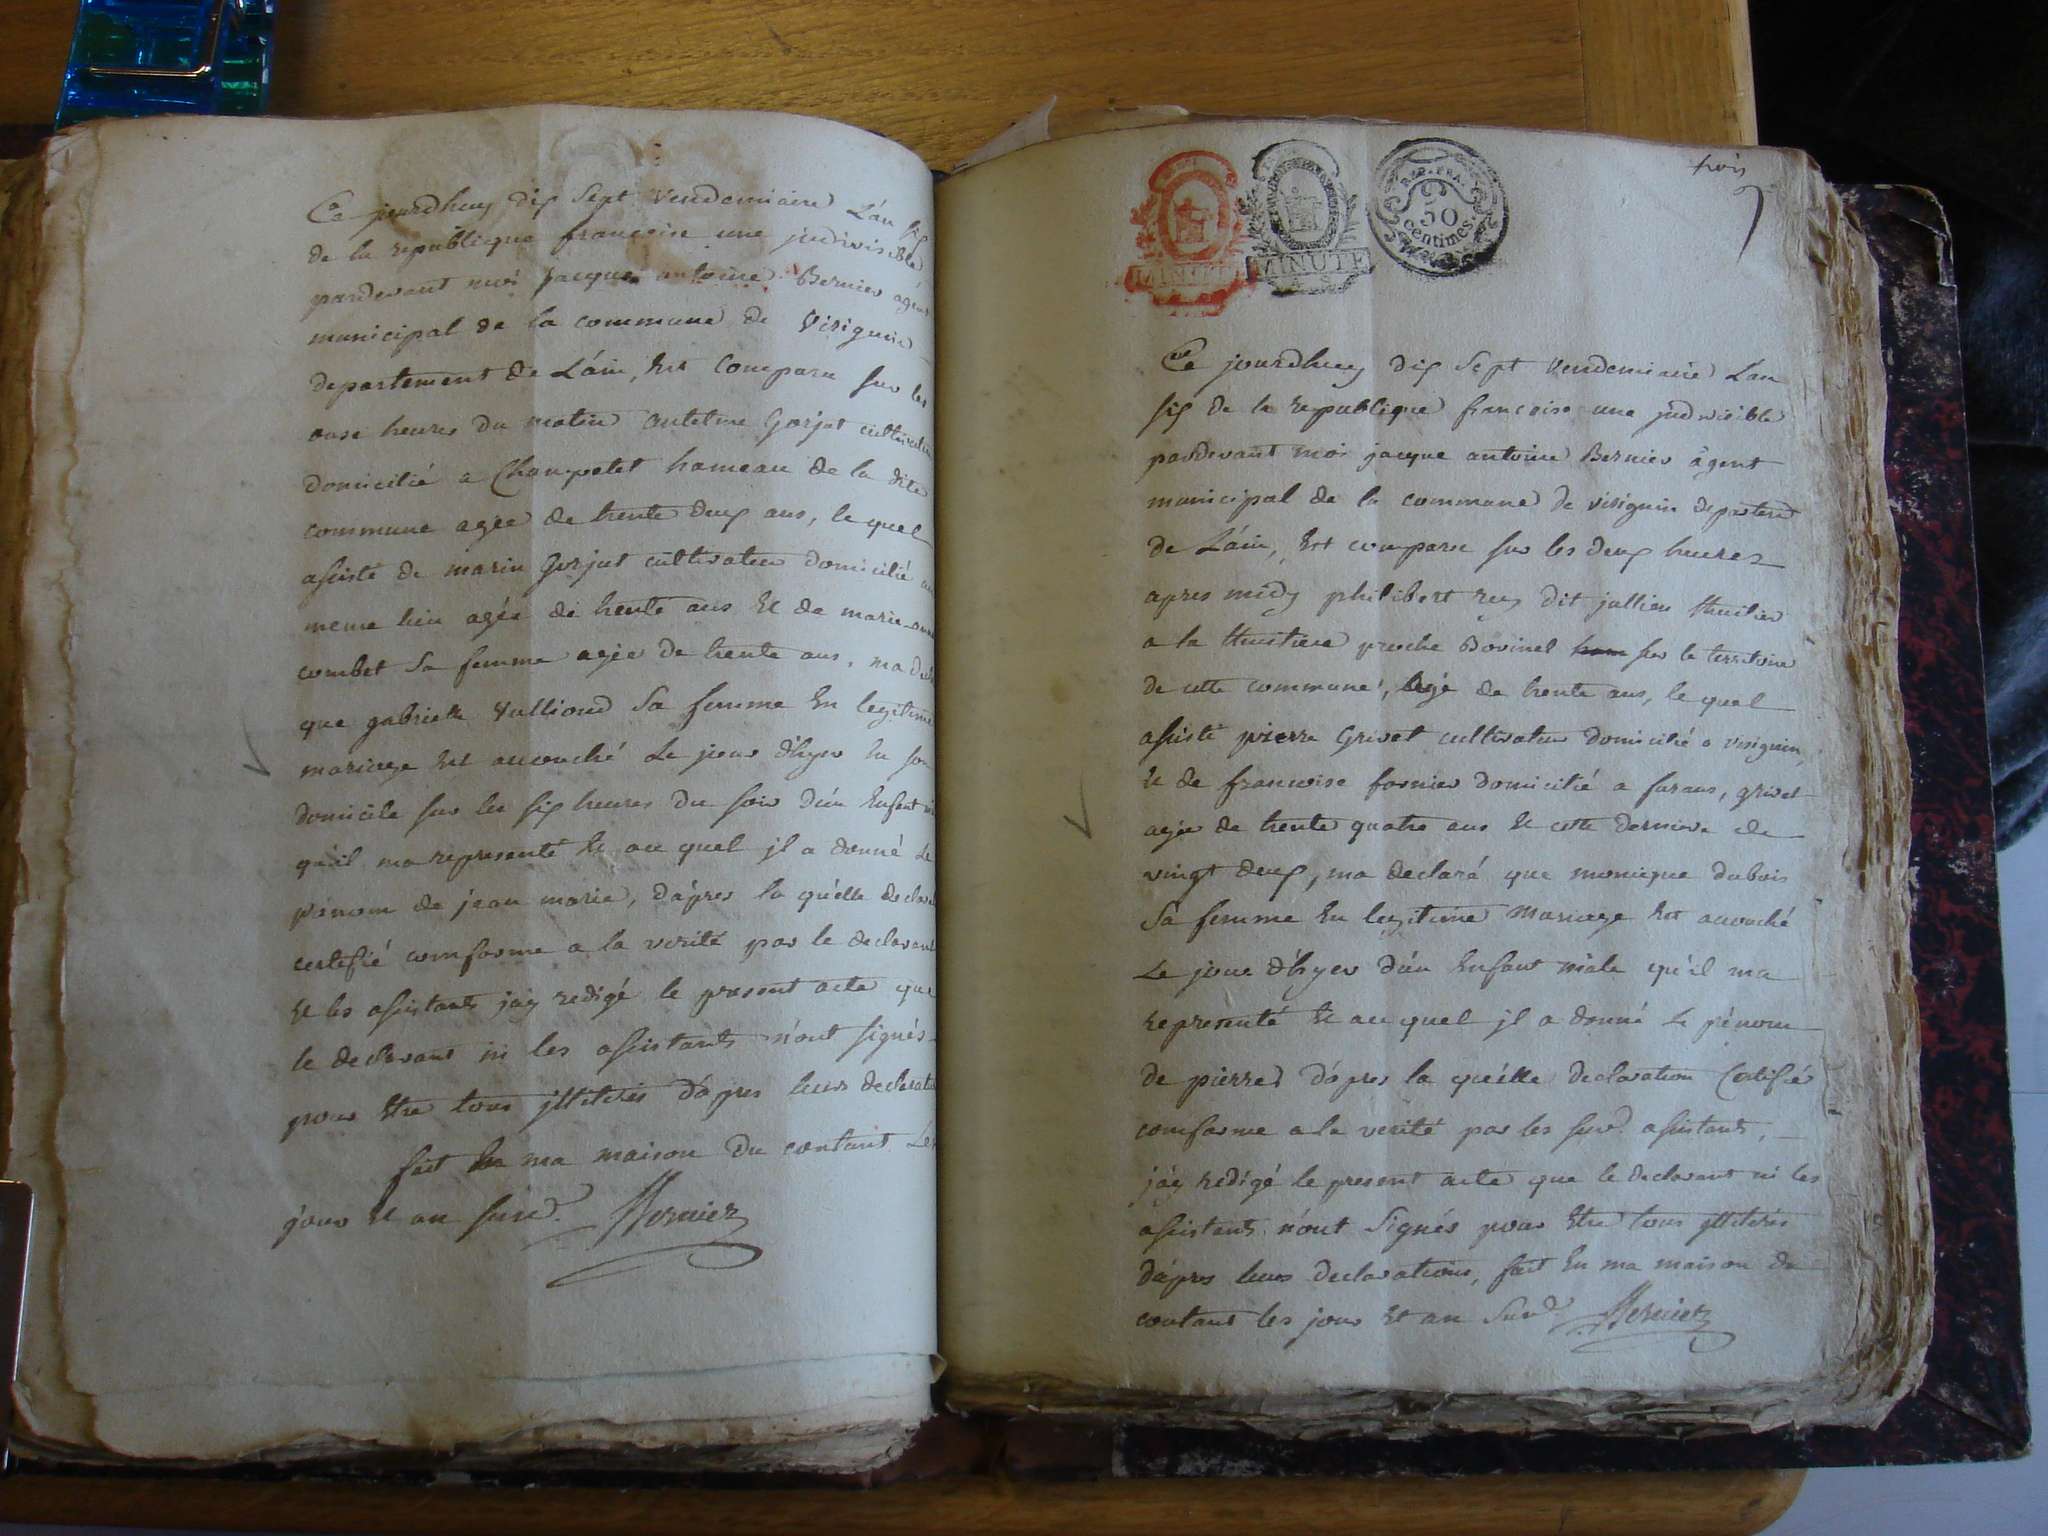 Ce jourdhuy dix sept vendemiaire L'an six
de la republique francoise une jndivisible
pardevant moi jacque antoine Bernier agent
municipal de la commune de Virignin
departement de L'ain, Est Comparu sur les
onse heures du matin antelme Gorjut cultivateur
domicilié a Champetet hameau de la dite
commune agée de trente deux ans, le quel
asisté de marin Gorjut cultivateur domicilié au
meme lieu agée de trente ans Et de marie anne
combet Sa femme agée de trente ans, ma declaré
que gabrielle Vulliod Sa femme En legitime
mariage Est accouché Le jour d'hyer En son
domicile sur les six heures du soir d'un Enfant
qu'il ma representé Et au quel jl a donné Le
prénom de jean marie, d'ápres la qu'elle declaration
certifié comforme a la verité par le declarant
Et les asistants j'ay redigé le present acte que
le declarant ni les asistants n'ont signés
pour Etre tous jlliterés d'ápres leurs declarations
fait En ma maison du contant Les
jour Et an susd. Bernier
trois
MINUTE
MINUTE
REP. FRA.
50
centimes
Ce jourdhuy dix Sept Vendemiaire L'an
six de la republique francoise une jndivisible
pardevant moi jacque antoine Bernier agent
municipal de la commune de virignin departemt
de L'ain, Est comparu sur les deux heures
apres midy philibert rey dit jullien thuilier
a la thuilliere proche Bovinel ham sur le territoire
de cette commune, agé de trente ans, le quel
asisté pierre Grivet cultivateur domicilié a virignin,
Et de francoise fornier domicilié a furans, grivet
agée de trente quatre ans Et cette derniere de
vingt deux, ma declaré que monique dubois
Sa femme En legitime Mariage Est accouché
Le jour d'hyer d'un Enfant male qu'il ma
representé Et au quel jl a donné Le prénom
de pierre d'ápres la qu'elle declaration Certifié
comforme a la verité par les susd. asistants,
j'ay redigé le present acte que le declarant ni les
asistants n'ont Signés pour Etre tous jlliterés
d'ápres leurs declarations, fait En ma maison du
contant les jour Et an Susd. Bernier